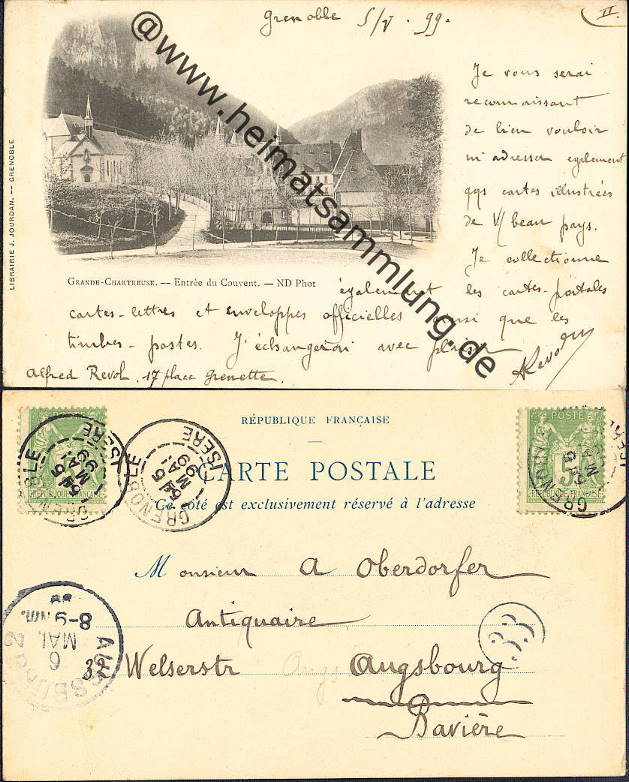 Grenoble 5/V. 99.
II
Je vous serai
reconnaissant
de bien vouloir
m'adresser également
qqs cartes illustrées
de V/ beau pays.
Je collectionne
également les cartes-postales
cartes-lettres et enveloppes officielles ainsi que les
timbres-postes. J'échangerai avec plaisir
ARevol
Alfred Revol, 17 place Grenette.
LIBRAIRIE J. JOURDAN. — GRENOBLE
GRANDE-CHARTREUSE. — Entrée du Couvent. — ND Phot
@www.heimatsammlung.de
RÉPUBLIQUE FRANÇAISE
CARTE POSTALE
Ce côté est exclusivement réservé à l'adresse
GRENOBLE ISERE
5 MAI 99
GRENOBLE ISERE
5 MAI 99
POSTE
GRENOBLE ISERE
5 MAI
Monsieur A Oberdorfer
Antiquaire
Welserstr Augs Augsbourg
Bavière
33
AUGSBURG 2
6 MAI.
8-9 NM.
99